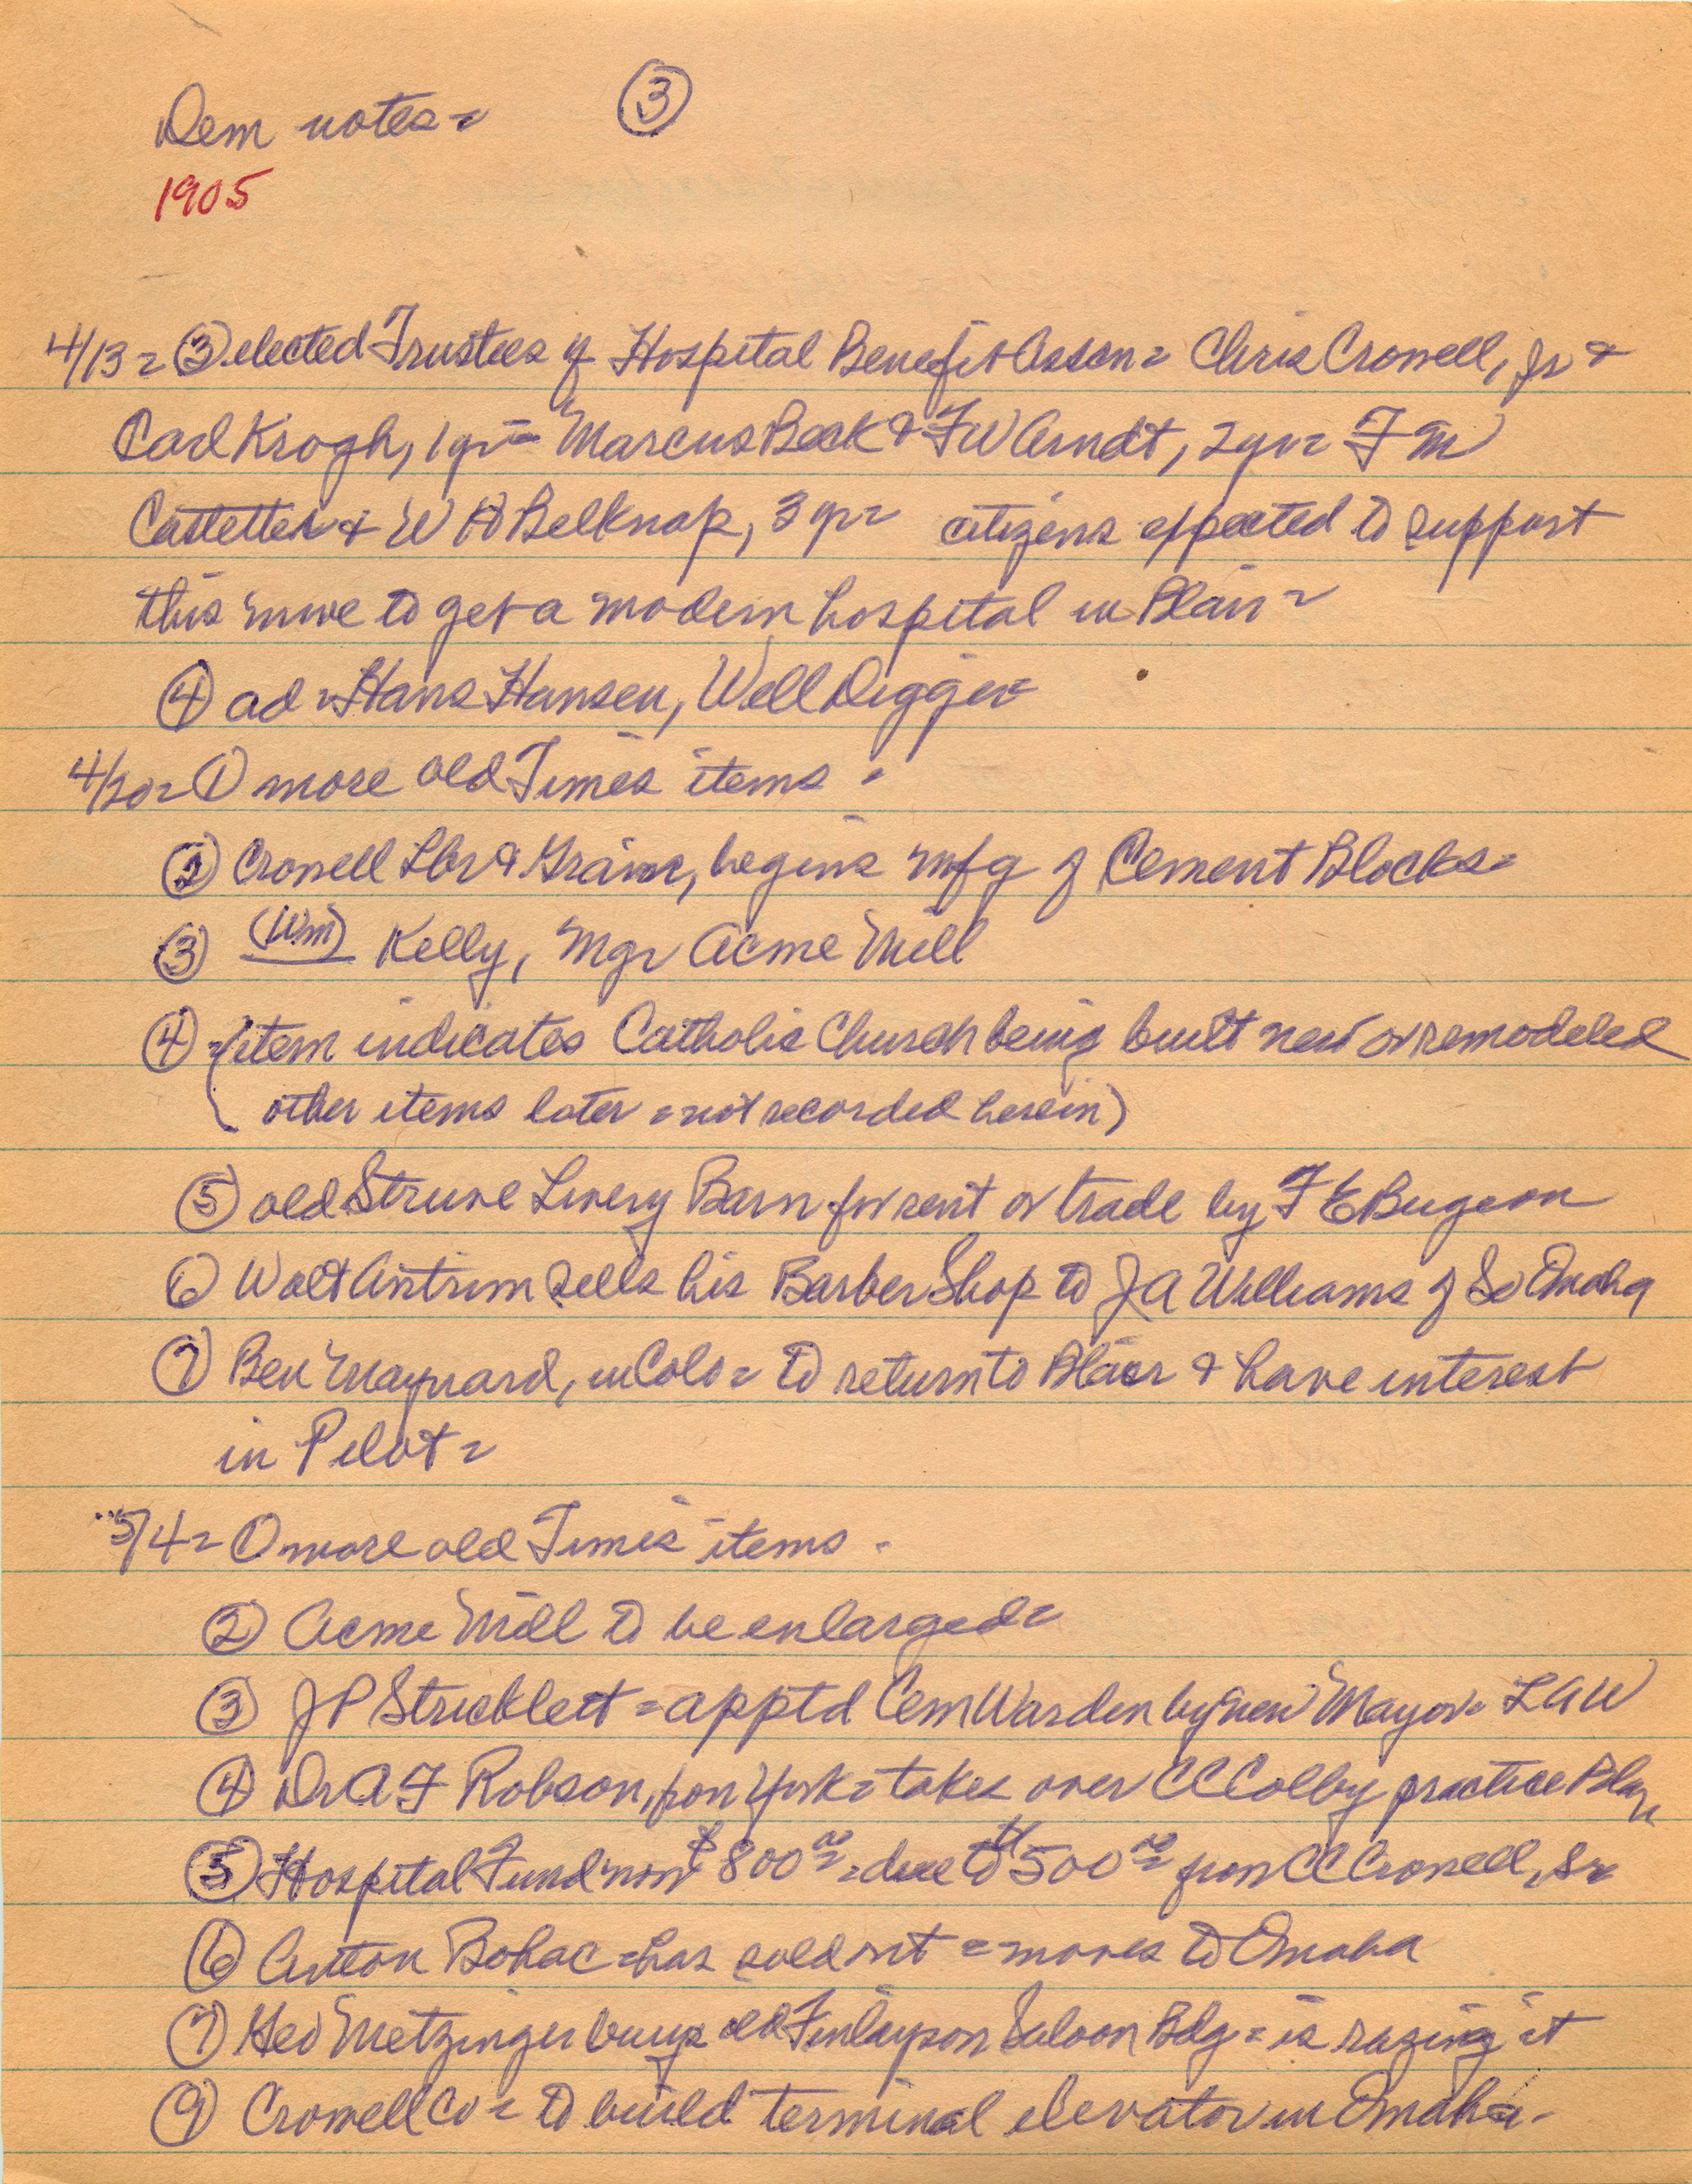 Dem notes = ③
1905
4/13 = ③ elected Trustees of Hospital Benefit Assn = Chris Crowell, Jr &
Carl Krogh, 1 yr = Marcus Beck & F W Arndt, 2 yr = F M
Castetter & W H Belknap, 3 yr = citizens expected to support
this move to get a modern hospital in Blair =
④ ad = Hans Hansen, Well Digger =
4/20 = ① more old Times items =
② Crowell Lbr & Grain, begins mfg of Cement Blocks =
③ (Wm) Kelly, Mgr Acme Mill
④ = (item indicates Catholic Church being built new or remodeled
other items later = not recorded herein)
⑤ old Struve Livery Barn for rent or trade by F E
⑥ Walt Antrim sells his Barber Shop to J A Williams of So Omaha
⑦ Ben Maynard, in Colo = to return to Blair & have interest
in Pilot =
5/4 = ① more old Times items -
② Acme Mill to be enlarged =
③ J P Stricklett = apptd Cem Warden by new Mayor = LAW
④ Dr A F Robson, from York = takes over C C Colby practice Blair
⑤ Hospital Fund now $800.00 = due to $500.00 from C C Crowell, Sr
⑥ Anton Bohac = has sold out = moves to Omaha
⑦ Geo Metzinger buys old Finlayson Saloon Bldg = is razing it
⑨ Crowell Co = to build terminal elevator in Omaha -